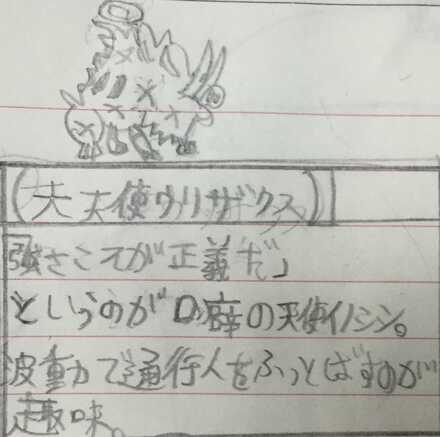 (大天使ウリザウス)
「強さこそが正義だ」
というのが口癖の天使イノシシ。
波動で通行人をふっとばすのが
趣味。